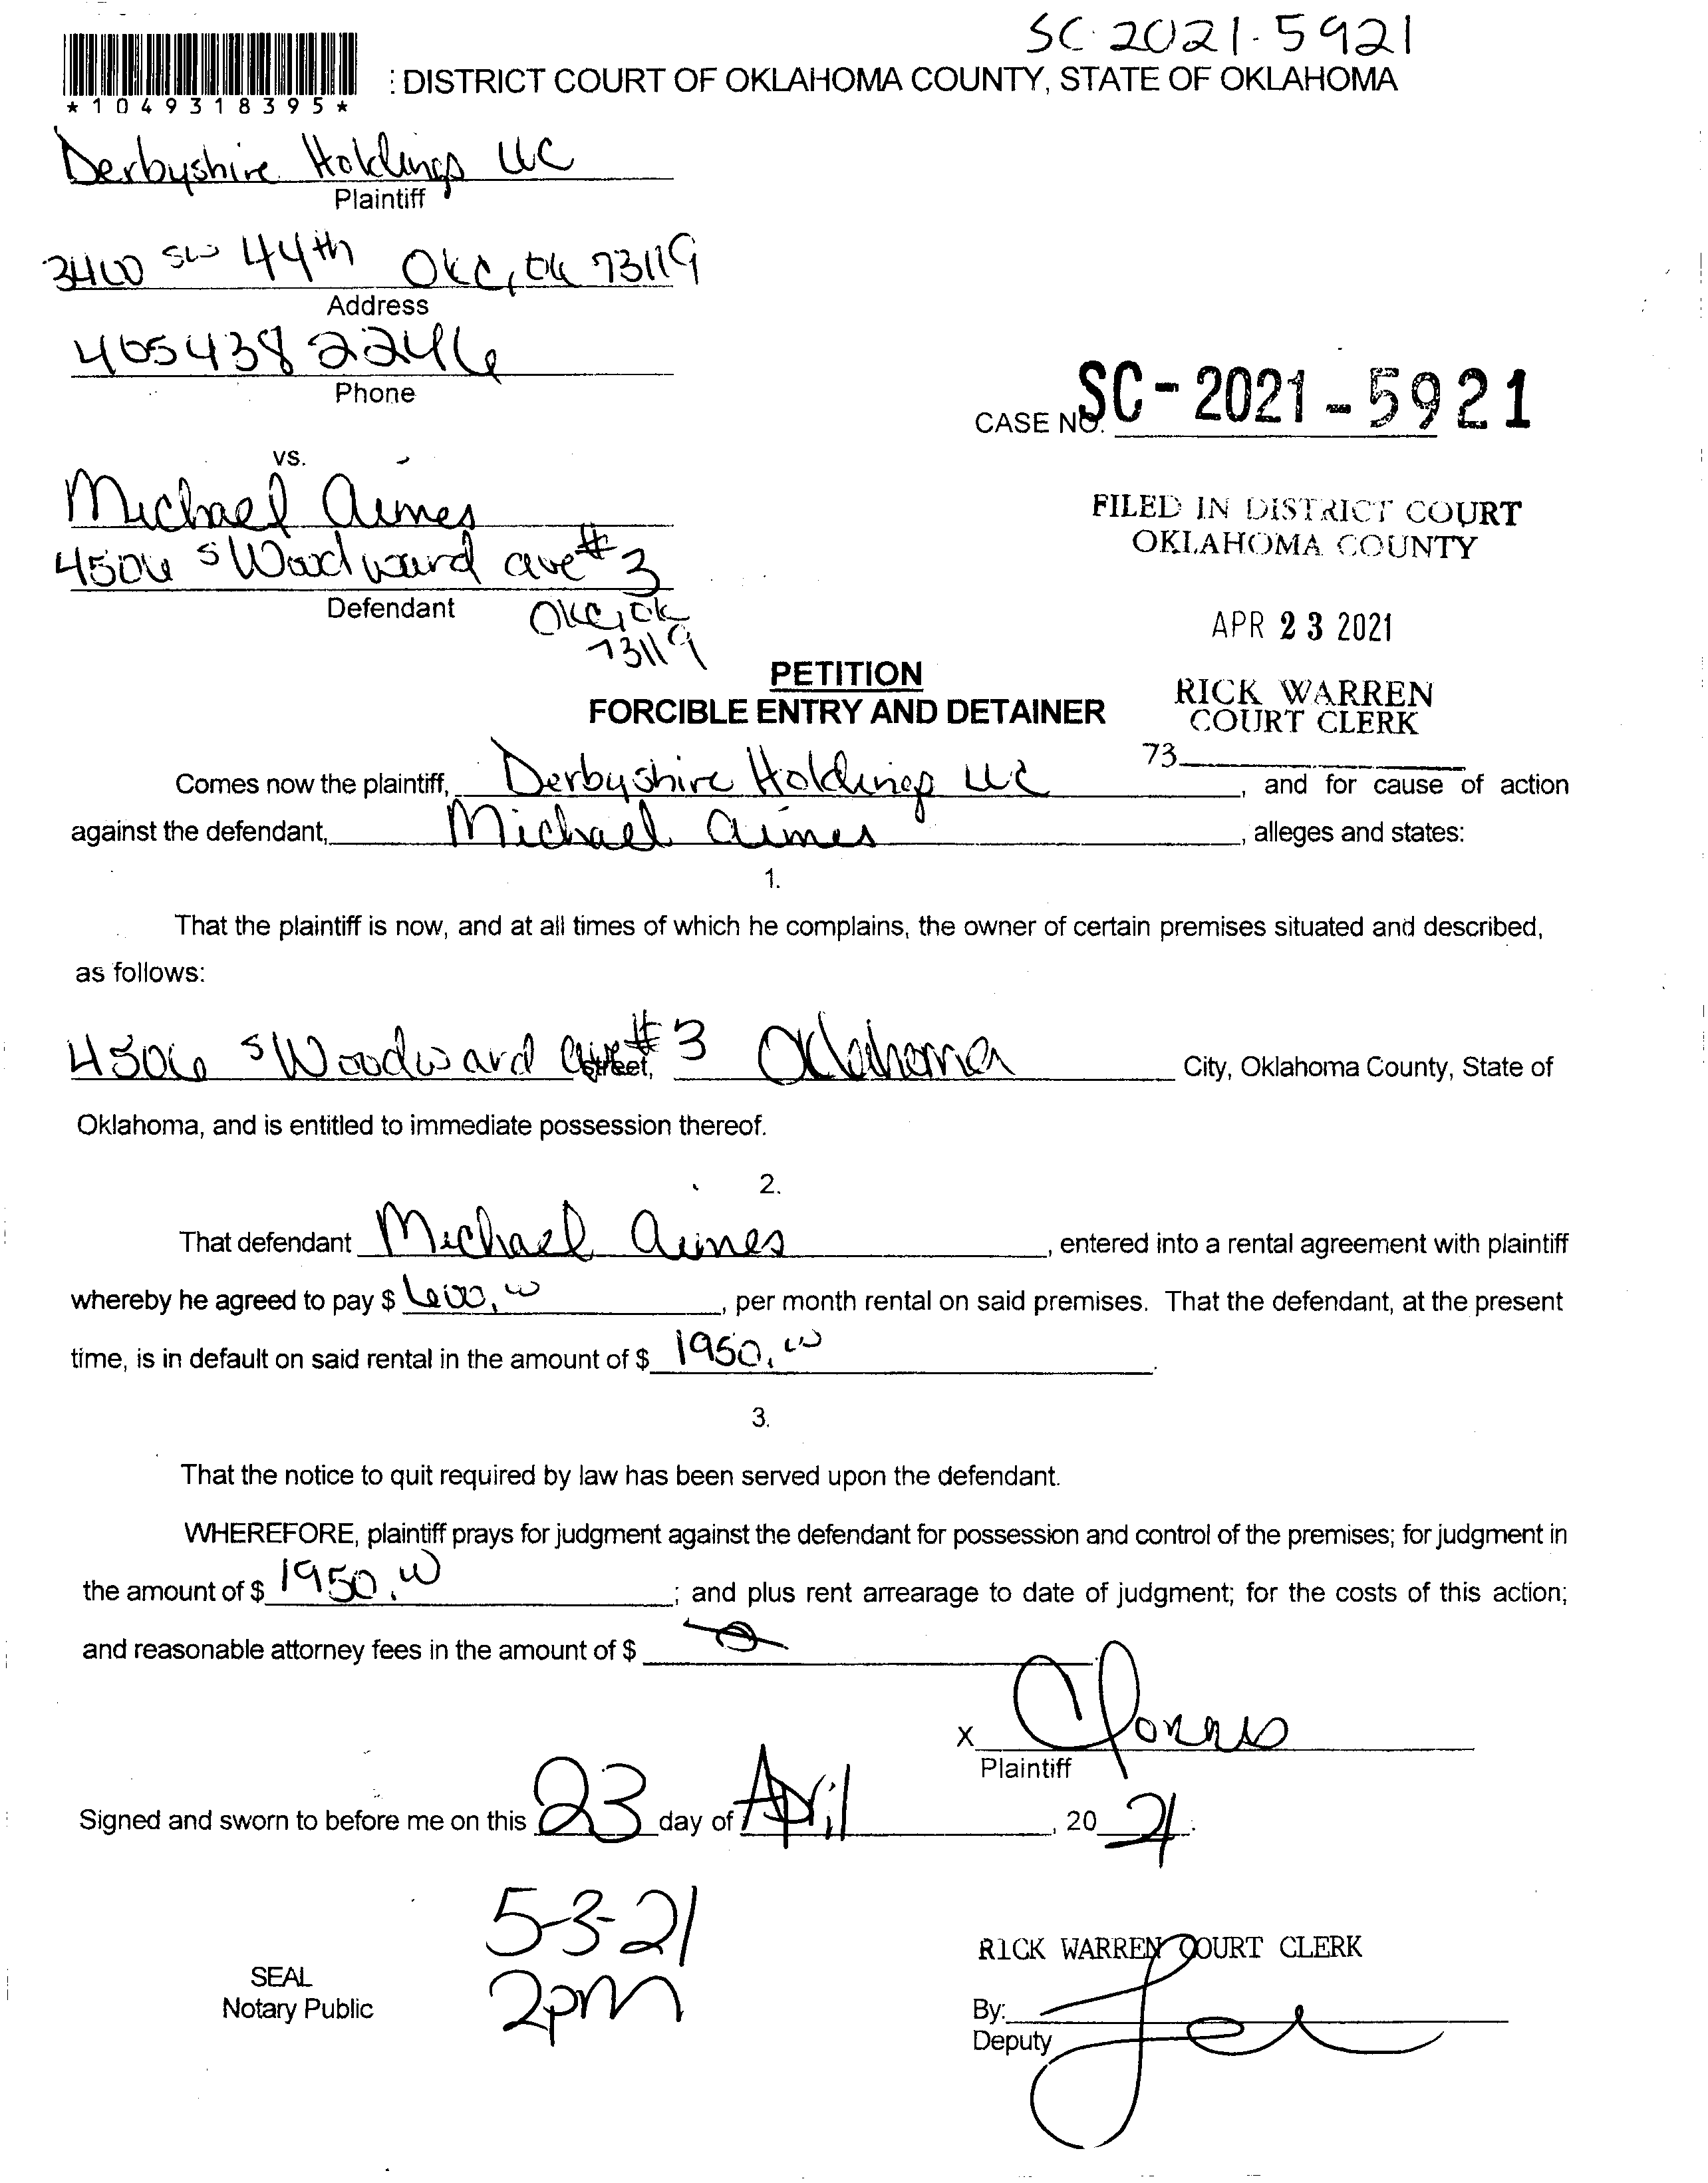 SC-2021-5921
: DISTRICT COURT OF OKLAHOMA COUNTY, STATE OF OKLAHOMA
*1049318395*
Derbyshire Holdings LLC
Plaintiff
3400 SW 44th OKC, OK 73119
Address
405 438 2246
Phone
CASE NO. SC-2021-5921
vs.
Michael Aimes
FILED IN DISTRICT COURT
OKLAHOMA COUNTY
4506 S Woodward ave #3
Defendant
OKC, OK
73119
APR 23 2021
PETITION
FORCIBLE ENTRY AND DETAINER
RICK WARREN
COURT CLERK
73
Comes now the plaintiff, Derbyshire Holdings LLC, and for cause of action
against the defendant, Michael Aimes, alleges and states:
1.
That the plaintiff is now, and at all times of which he complains, the owner of certain premises situated and described,
as follows:
4506 S Woodward ave #3 street, Oklahoma City, Oklahoma County, State of
Oklahoma, and is entitled to immediate possession thereof.
2.
That defendant Michael Aimes, entered into a rental agreement with plaintiff
whereby he agreed to pay $ 600.00, per month rental on said premises. That the defendant, at the present
time, is in default on said rental in the amount of $ 1950.00.
3.
That the notice to quit required by law has been served upon the defendant.
WHEREFORE, plaintiff prays for judgment against the defendant for possession and control of the premises; for judgment in
the amount of $ 1950.00; and plus rent arrearage to date of judgment; for the costs of this action;
and reasonable attorney fees in the amount of $ 0.
X
Plaintiff
Signed and sworn to before me on this 23 day of April, 20 21.
5-3-21
2pm
SEAL
Notary Public
RICK WARREN COURT CLERK
By:
Deputy